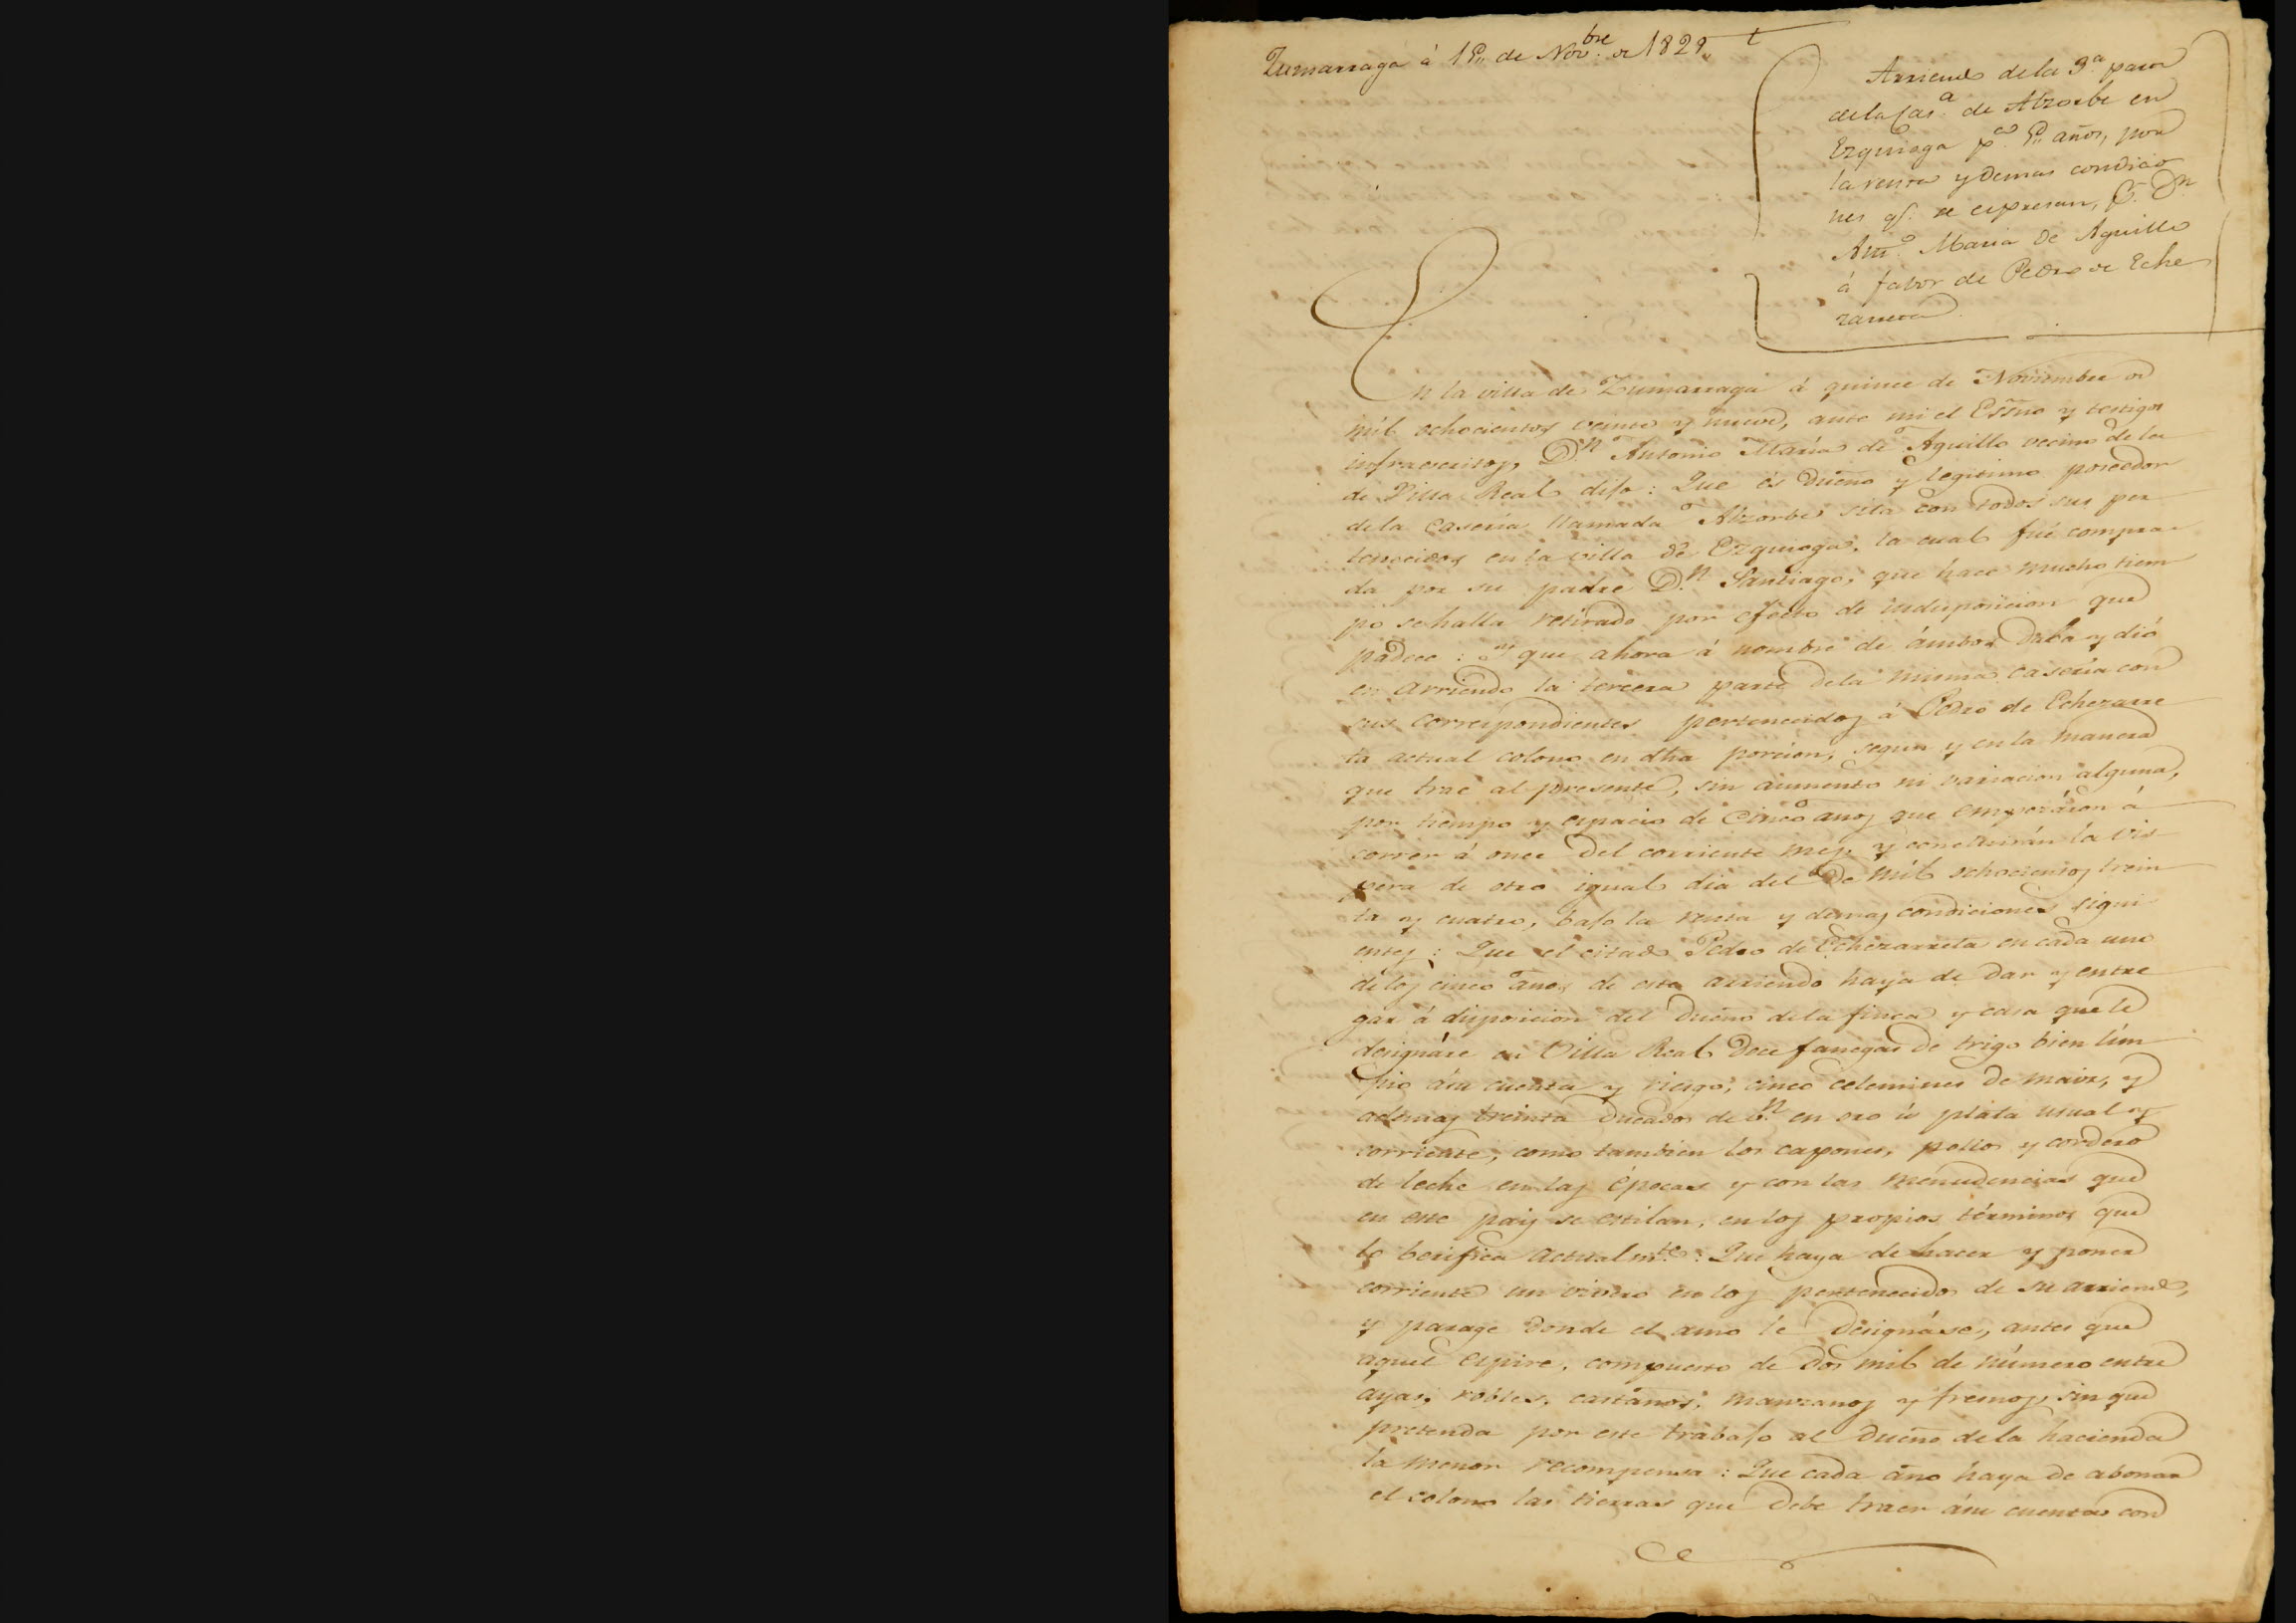 Zumarraga á 15,, de Nov.bre de 1829,,
Arriendo de la 3.a parte
de la Cas.a de Alzorbe en
Ezquioga p.a 5,, años, por
la renta y demas condicio
nes q.e se espresan, p.r D.n
Ant.o Maria de Aguillo
á fabor de Pedro de Eche
zarreta.
En la villa de Zumarraga á quince de Noviembre de
mil ochocientos veinte y nueve, ante mi el Essno y testigos
infraescritos, D.n Antonio María de Aguillo vecino de la
de Villa Real dijo: Que és Dueño y legitimo poseedor
de la Casería llamada Alzorbe sita con todos sus per
tenecidos en la villa de Ezquioga, la cual fué compra
da por su padre D.n Santiago, que hace mucho tiem
po se halla retirado por efecto de indisposicion que
padece: y que ahora á nombre de ámbos daba y dió
en arriendo la tercera parte de la misma casería con
sus correspondientes pertenecidos á Pedro de Echezarre
ta actual colono en dha porcion, segun y en la manera
que trae al presente, sin aumento ni variacion alguna,
por tiempo y espacio de Cinco años que empezáron á
correr á once del corriente mes, y concluirán la vis
pera de otro igual dia del de mil ochocientos trein
ta y cuatro, bajo la renta y demas condiciones sigui
entes: Que el citado Pedro de Echezarreta en cada uno
de los cinco años de este arriendo haya de dar y entre
gar á disposicion del Dueño de la finca y casa que le
designáre en Villa Real Doce fanegas de trigo bien lim
pio á su cuenta y riesgo, cinco celemines de maiz, y
ademas treinta Ducados de v.n en oro ú plata usual y
corriente, como tambien los capones, pollos y cordero
de leche en las épocas y con las menudencias que
en este pais se estilan, en los propios términos que
lo berifica actualm.te: Que haya de hacer y poner
corriente un vivero en los pertenecidos de su arriendo,
y parage donde el amo le designáse, antes que
aquel espire, compuesto de dos mil de número entre
ayas, robles, castaños, manzanos y fresnos, sin que
pretenda por este trabajo al Dueño de la hacienda
la menor recompensa: Que cada año haya de abonar
el colono las tierras que debe traer á su cuenta con